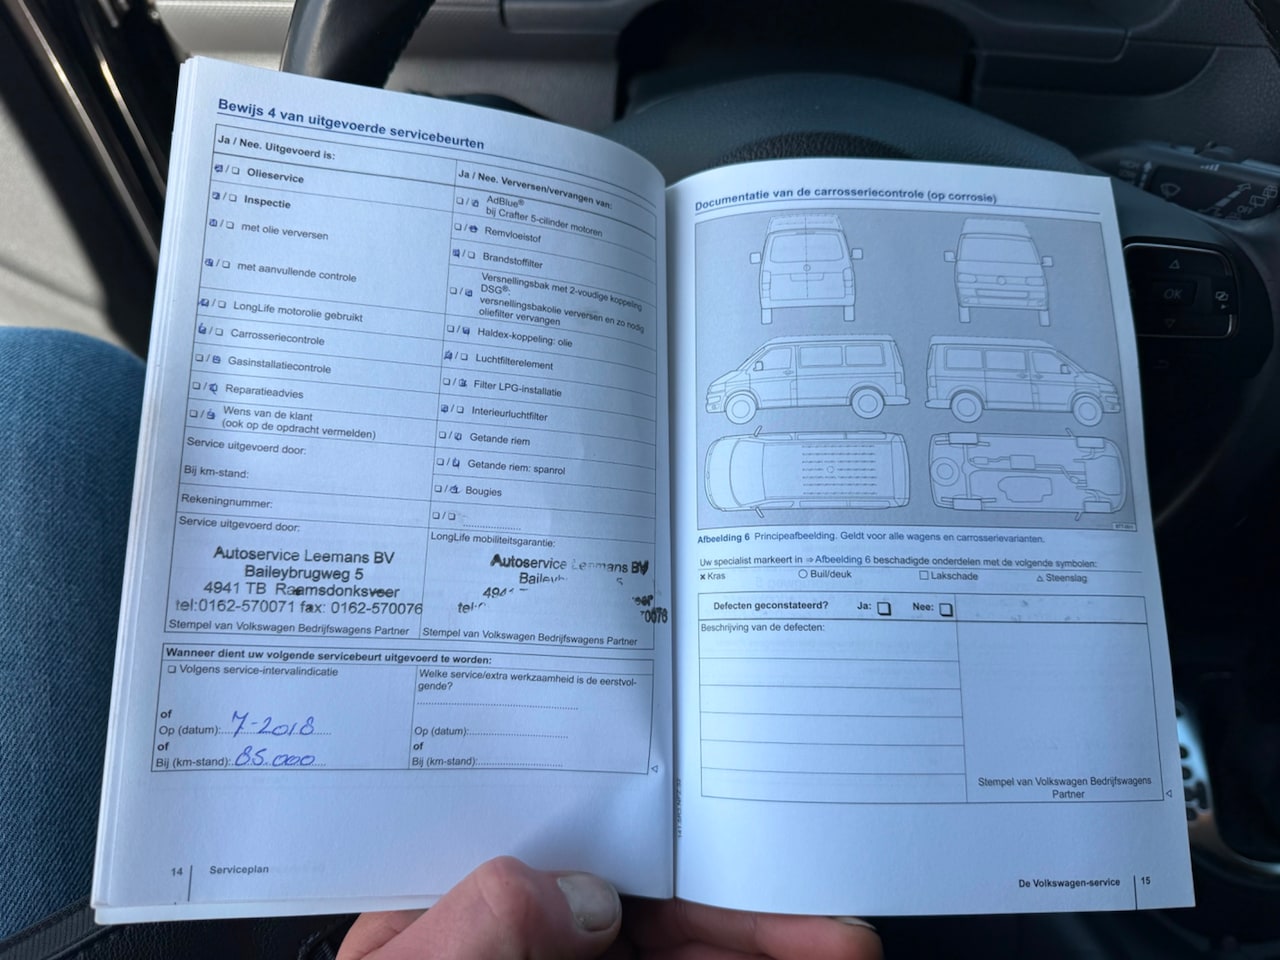 Bewijs 4 van uitgevoerde servicebeurten
Ja / Nee. Uitgevoerd is:
❏/❏ Olieservice
❏/❏ Inspectie
❏/❏ met olie verversen
❏/❏ met aanvullende controle
❏/❏ LongLife motorolie gebruikt
❏/❏ Carrosseriecontrole
❏/❏ Gasinstallatiecontrole
❏/❏ Reparatieadvies
❏/❏ Wens van de klant
(ook op de opdracht vermelden)
Service uitgevoerd door:
Bij km-stand:
Rekeningnummer:
Service uitgevoerd door:
Autoservice Leemans BV
Baileybrugweg 5
4941 TB Raamsdonksveer
tel:0162-570071 fax: 0162-570076
Stempel van Volkswagen Bedrijfswagens Partner
Ja / Nee. Verversen/vervangen van:
❏/❏ AdBlue®
bij Crafter 5-cilinder motoren
❏/❏ Remvloeistof
❏/❏ Brandstoffilter
❏/❏ Versnellingsbak met 2-voudige koppeling
DSG®-
versnellingsbakolie verversen en zo nodig
oliefilter vervangen
❏/❏ Haldex-koppeling: olie
❏/❏ Luchtfilterelement
❏/❏ Filter LPG-installatie
❏/❏ Interieurluchtfilter
❏/❏ Getande riem
❏/❏ Getande riem: spanrol
❏/❏ Bougies
❏/❏
LongLife mobiliteitsgarantie:
Autoservice Leemans BV
5
tel:
Stempel van Volkswagen Bedrijfswagens Partner
Wanneer dient uw volgende servicebeurt uitgevoerd te worden:
❏ Volgens service-intervalindicatie
of
Op (datum): 7-2018
of
Bij (km-stand): 85.000
Welke service/extra werkzaamheid is de eerstvol-
gende?
Op (datum):
of
Bij (km-stand):
14 Serviceplan
Documentatie van de carrosseriecontrole (op corrosie)
Afbeelding 6 Principeafbeelding. Geldt voor alle wagens en carrosserievarianten.
Uw specialist markeert in ⇒ Afbeelding 6 beschadigde onderdelen met de volgende symbolen:
× Kras ○ Buil/deuk □ Lakschade △ Steenslag
Defecten geconstateerd? Ja: ❏ Nee: ❏
Beschrijving van de defecten:
Stempel van Volkswagen Bedrijfswagens
Partner
De Volkswagen-service 15
OK